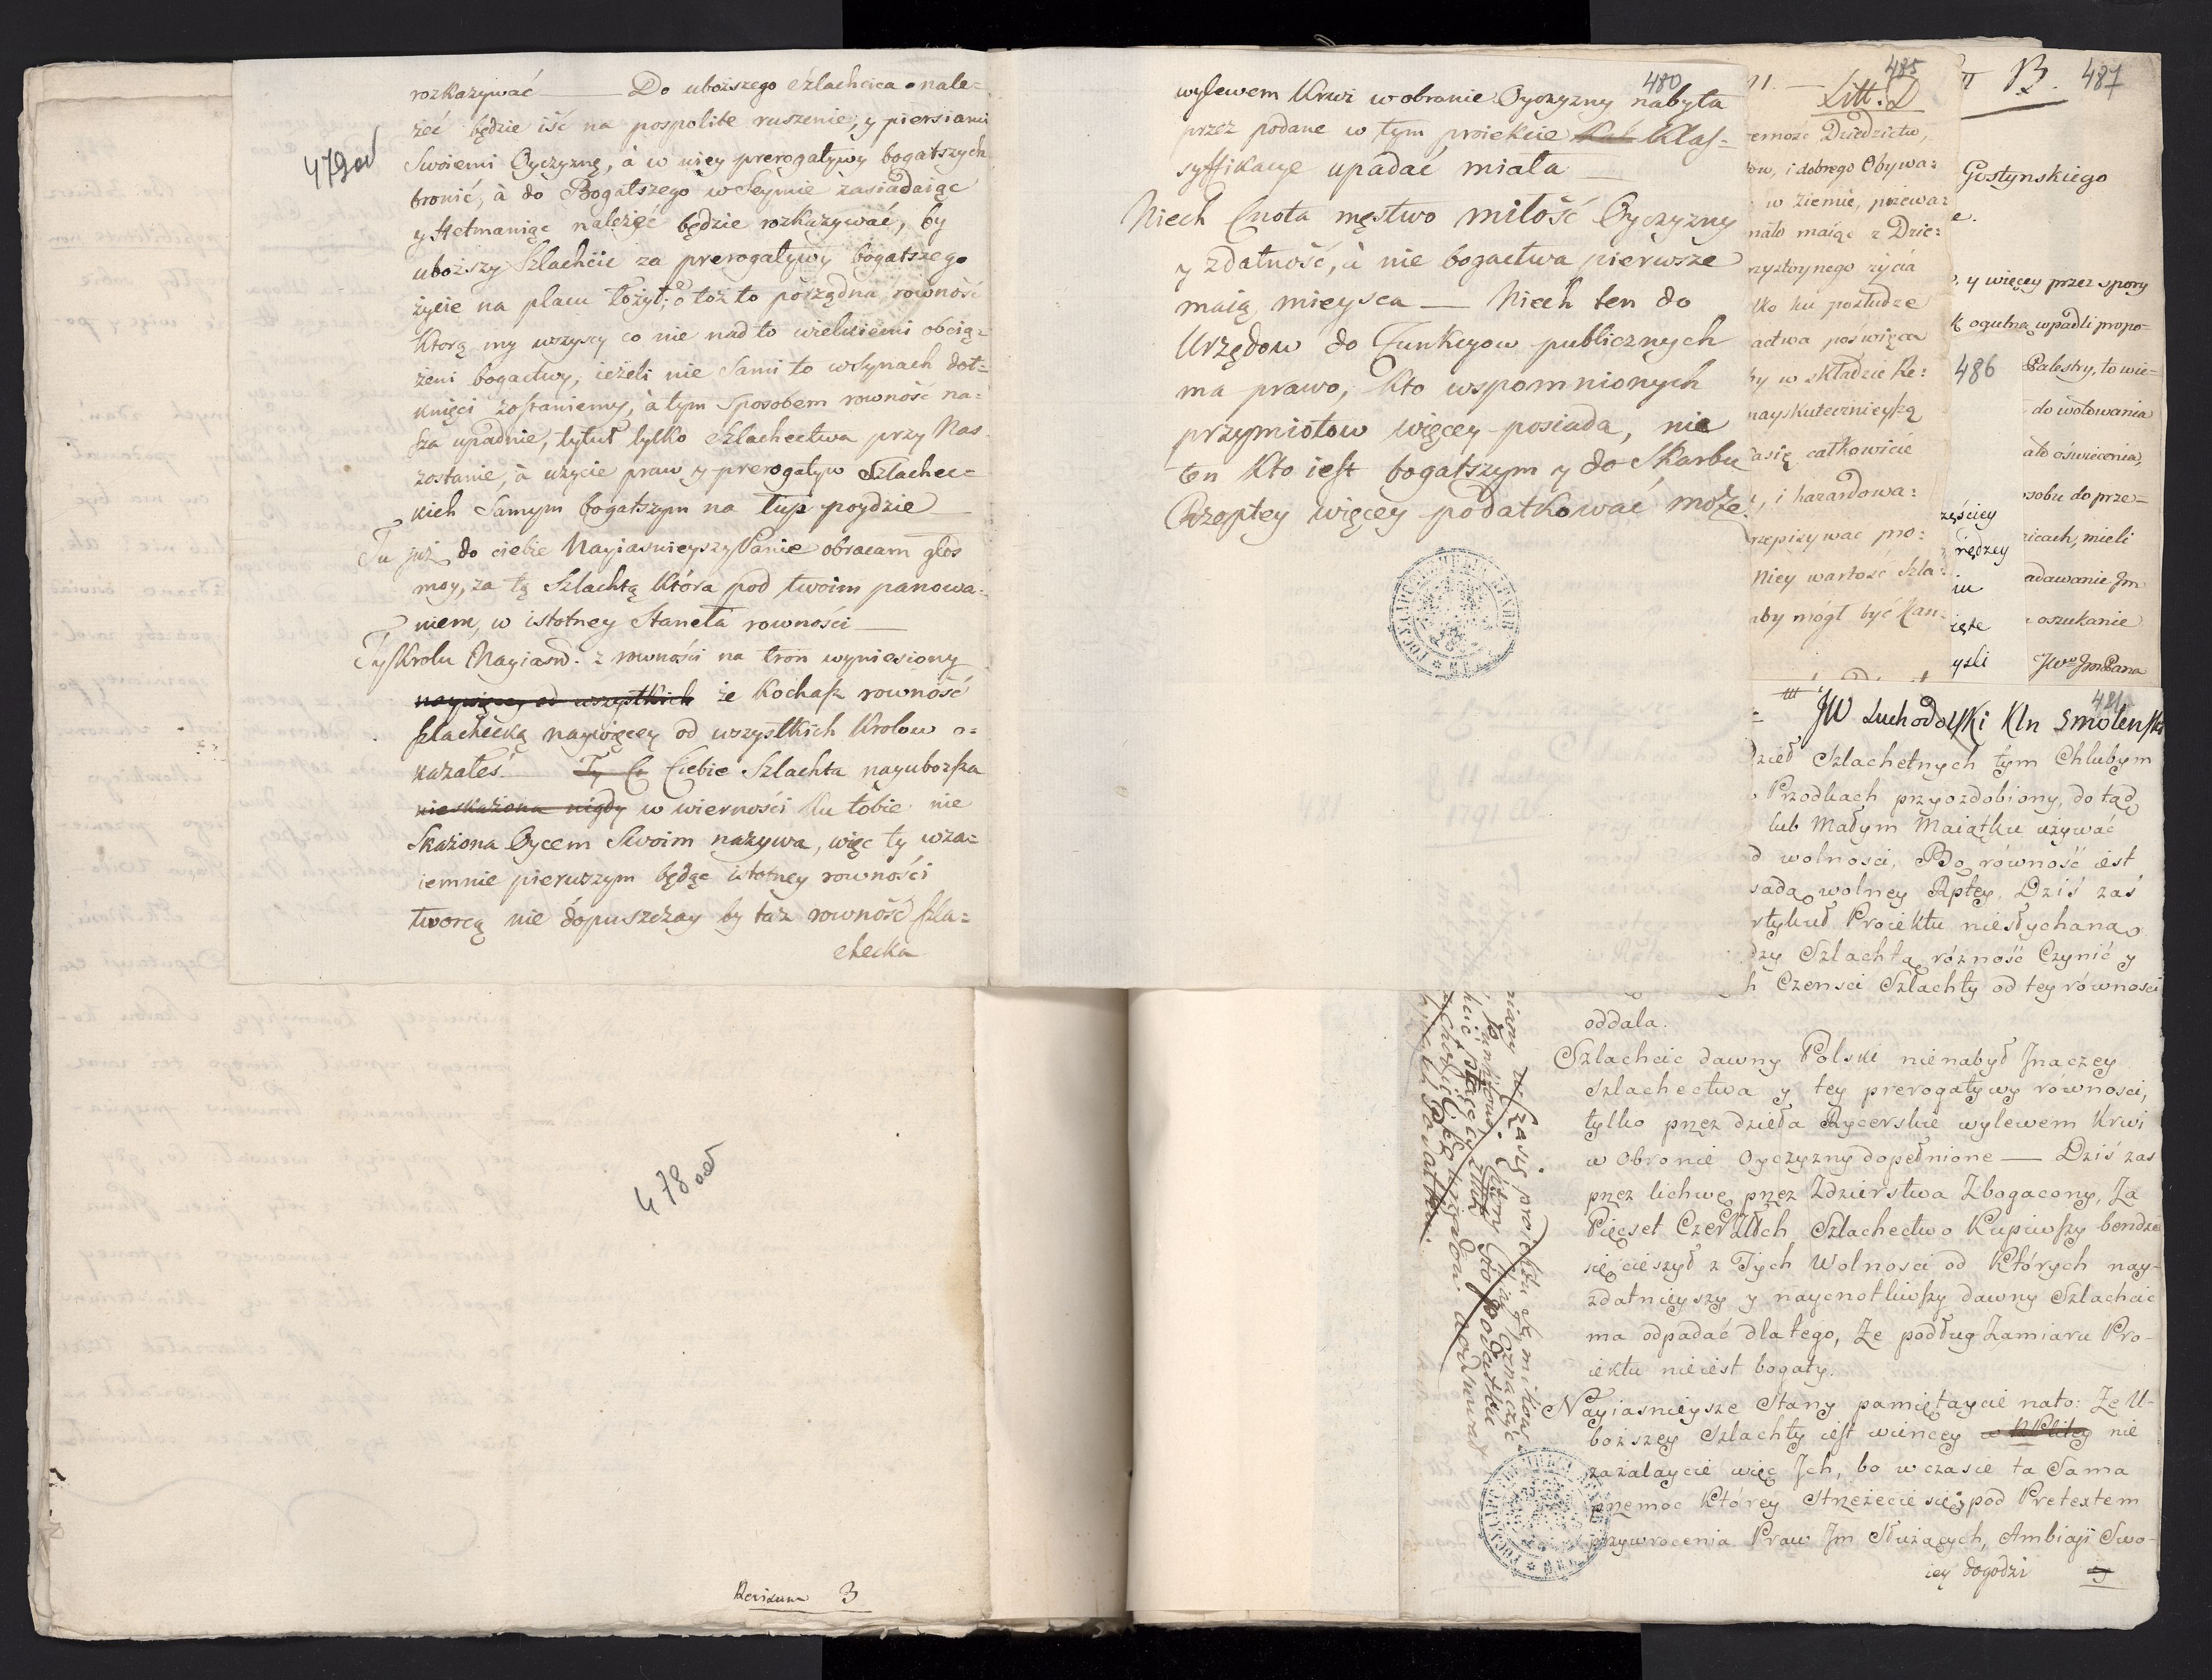 479od
rozkazywać — Do uboższego Szlachcica nale=
żeć będzie iść na pospolite ruszenie, y piersiami
Swoiemi Oyczyznę, à w niey prerogatywy bogatszych
bronić, à do Bogatszego w Seymie zasiadaiąc
y Hetmaniąc należeć będzie rozkazywać, by
uboższy Szlachcic za prerogatywy bogatszego
życie na placu łożył; o toż to porządna rowność
Ktorą my wszyscy co nie nad to wielkiemi obcią=
żeni bogactwy, ieżeli nie Sami to w Synach dot=
knięci zostaniemy, à tym Sposobem rowność na=
sza upadnie, tytuł tylko Szlachectwa przy Nas
zostanie, à użycie praw y prerogatyw Szlachec=
kich Samym bogatszym na łup poydzie —
Tu już do ciebie Nayiasnieyszy Panie obracam głos
moy, za tą Szlachtą Która pod twoim panowa=
niem, w istotney Staneła rowności —
Ty Krolu Nayiasn̄. z rowności na tron wyniesiony
naywięcey od wszystkich że Kochasz rowność
szlachecką naywięcey od wszystkich Krolow o=
kazałeś — Ty Ciebie Szlachta nayubozsza
nieskażona nigdy w wierności Ku tobie nie
Skażona Oycem Swoim nazywa, więc ty wza=
iemnie pierwszym będąc istotney rowności
tworcą nie dopuszczay by taż rowność szla=
checka
478od
Revisum 3
480
wylewem Krwi w obranie Oyczyzny nabyta
przez podane w tym proiekcie Klas=
syffikacye upadać miała —
Niech Cnota męstwo miłość Oyczyzny
y zdatność, à nie bogactwa pierwsze
maią mieysca — Niech ten do
Urzędow do Funkcyow publicznych
ma prawo, Kto wspomnionych
przymiotow więcey posiada, nie
ten Kto iest bogatszym y do Skarbu
Rzeptey więcey podatkować może.
485
Litt. D
Dziedzictw,
ow, i dobrego Obywa=
w ziemie, przewa=
mało maiąc z Dzie=
życia
ko ku posłudze
actwa poświęca
by w składzie Re=
nayskutecznieyszą
asię całkowicie
, i hazardowa=
rzepisywac pro=
Niey wartosc Szla=
aby mógł być Kan=
B. 487
Gostynskiego
e.
y więcey przez spory
ogulną wpadli propo=
486
Palestry, to wie=
do wotowania
ato oświecenia,
osobu do prze=
zęściey
icach, mieli
rędzey
adawanie Im
iu
oszukanie
ięte
yzli
Jwo Jm Pana
481
JW Suchodolski Kln Smolensk
Dzieł Szlachetnych tym Chlubym
Przodkach przyozdobiony, do tąd
lub Małym Maiątku używać
d wolnosci, Bo równość iest
sadą wolney Rptey. Dziś zaś
rtykuł Proiektu niesłychaną
dzy Szlachtą różność Czynić y
h Czensci Szlachty od tey równosci
oddala.
Szlachcic dawny Polski nienabył Jnaczey
szlachectwa y tey prerogatywy równosci,
tylko przez dzieła Rycerskie wylewem Krwi
w Obronie Oyczyzny dopełnione — Dziś zas
przez lichwę przez Zdzierstwa Zbogacony, Za
Pięcset Czer Złłch Szlachectwo Kupiwszy bendzie
się cieszył z Tych Wolnosci od Których nay-
zdatnieyszy y naycnotliwszy dawny Szlachcic
ma odpadać dla tego, Ze podług Zamiaru Pro-
iektu nieiest bogaty.
Nayiasnieysze Stany pamiętaycie nato: Ze U-
boższey Szlachty iest wiencey w RPlitey nie
zażalaycie więc Jch, bo w czasie ta Sama
przemoc Którey Strzeżecie się pod Pretextem
przywrocenia Praw Jm Służących, Ambicyi Swo-
iey dogodzi